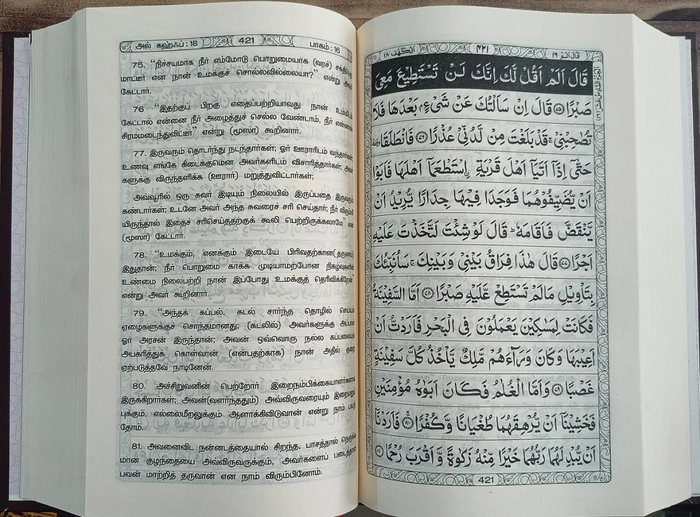 அல் கஹ்ஃப் : 18 421 பாகம் : 16
75. “நிச்சயமாக நீர் எம்மோடு பொறுமையாக (வர) சக்தி
மாட்டீர் என நான் உமக்குச் சொல்லவில்லையா?” என்று அ
கேட்டார்.
76 “இதற்குப் பிறகு எதைப்பற்றியாவது நான் உம்மி
கேட்டால் என்னை நீர் அழைத்துச் செல்ல வேண்டாம், நீர் என்
சிரமமடைந்துவிட்டீர்” என்று (மூஸா) கூறினார்.
77. இருவரும் தொடர்ந்து நடந்தார்கள்; ஓர் ஊராரிடம் வந்தார்கள்
உணவு எங்கே கிடைக்குமென அவர்களிடம் விசாரித்தார்கள்; அவ
களுக்கு விருந்தளிக்க (ஊரார்) மறுத்துவிட்டார்கள்;
அவ்வூரில் ஒரு சுவர் இடியும் நிலையில் இருப்பதை இருவரும்
கண்டார்கள்; உடனே அவர் அந்த சுவரைச் சரி செய்தார்; நீர் விரும்பி
யிருந்தால் இதைச் சரிசெய்ததற்குக் கூலி பெற்றிருக்கலாமே என
(மூஸா) கேட்டார்.
78. “உமக்கும், எனக்கும் இடையே பிரிவதற்கான(தருணம்)
இதுதான்; நீர் பொறுமை காக்க முடியாமற்போன நிகழ்வுகளின்
உண்மை நிலைபற்றி நான் இப்போது உமக்குத் தெரிவிக்கிறேன்”
என்று அவர் கூறினார்.
79. “அந்தக் கப்பல், கடல் சார்ந்த தொழில் செய்யும்
ஏழைகளுக்குச் சொந்தமானது; (கடலில்) அவர்களுக்கு அப்பா
ஓர் அரசன் இருந்தான்; அவன் ஒவ்வொரு நல்ல கப்பலையும்
அபகரித்துக் கொள்வான் (என்பதற்காக) நான் அதில் குறை
ஏற்படுத்தவே நாடினேன்.
80. அச்சிறுவனின் பெற்றோர் இறைநம்பிக்கையாளர்களாக
இருக்கிறார்கள்; அவன்(வளர்ந்ததும்) அவ்விருவரையும் இறைம
புக்கும், எல்லைமீறலுக்கும் ஆளாக்கிவிடுவான் என்று நாம் பயந்
தோம்.
81. அவனைவிட நன்னடத்தையால் சிறந்த, பாசத்தால் நெருக்
மான குழந்தையை அவ்விருவருக்கும், அவர்களைப் படைத்த
பவன் மாற்றித் தருவான் என நாம் விரும்பினோம்.
الكهف ١٨ ٤٢١ قال الم ١٦
قَالَ اَلَمْ اَقُلْ لَّكَ اِنَّكَ لَنْ تَسْتَطِيْعَ مَعِيَ
صَبْرًا ۝ قَالَ اِنْ سَاَلْتُكَ عَنْ شَيْءٍ بَعْدَهَا فَلَا
تُصٰحِبْنِيْ قَدْ بَلَغْتَ مِنْ لَّدُنِّيْ عُذْرًا ۝ فَانْطَلَقَا
حَتّٰى اِذَا اَتَيَا اَهْلَ قَرْيَةِ اِسْتَطْعَمَا اَهْلَهَا فَاَبَوْا
اَنْ يُّضَيِّفُوْهُمَا فَوَجَدَا فِيْهَا جِدَارًا يُّرِيْدُ اَنْ
يَّنْقَضَّ فَاَقَامَهٗ قَالَ لَوْ شِئْتَ لَتَّخَذْتَ عَلَيْهِ
اَجْرًا ۝ قَالَ هٰذَا فِرَاقُ بَيْنِيْ وَبَيْنِكَ سَاُنَبِّئُكَ
بِتَاْوِيْلِ مَا لَمْ تَسْتَطِعْ عَّلَيْهِ صَبْرًا ۝ اَمَّا السَّفِيْنَةُ
فَكَانَتْ لِمَسٰكِيْنَ يَعْمَلُوْنَ فِي الْبَحْرِ فَاَرَدْتُّ اَنْ
اَعِيْبَهَا وَكَانَ وَرَآءَهُمْ مَّلِكٌ يَّاْخُذُ كُلَّ سَفِيْنَةٍ
غَصْبًا ۝ وَاَمَّا الْغُلٰمُ فَكَانَ اَبَوٰهُ مُؤْمِنَيْنِ
فَخَشِيْنَآ اَنْ يُّرْهِقَهُمَا طُغْيَانًا وَّكُفْرًا ۝ فَاَرَدْنَآ
اَنْ يُّبْدِلَهُمَا رَبُّهُمَا خَيْرًا مِّنْهُ زَكٰوةً وَّاَقْرَبَ رُحْمًا ۝
421